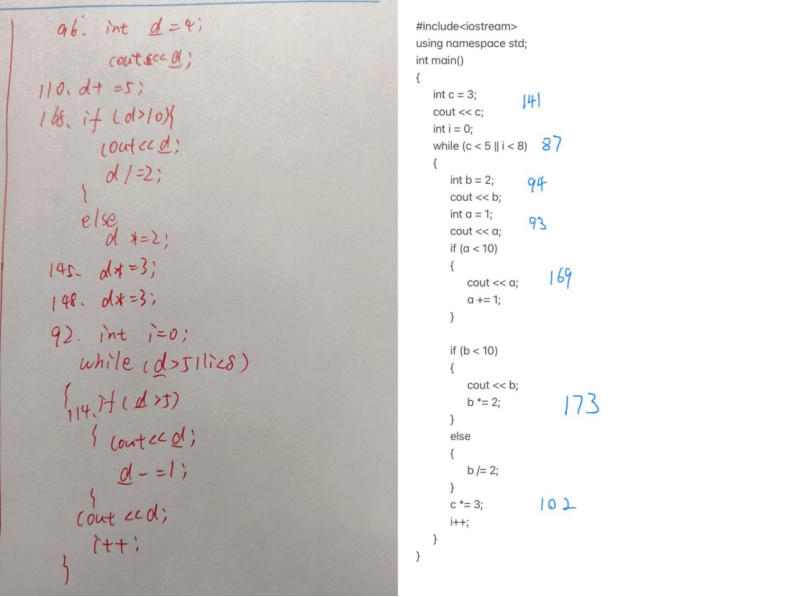 96. int d = 4;
cout<<d;
110. d+ =5;
168. if (d>10){
cout<<d;
d /=2;
}
else
d *=2;
145. d*=3;
148. d*=3;
92. int i=0;
while (d>5||i<8)
{
114. if (d>5)
{ cout<<d;
d-=1;
}
cout<<d;
i++;
}
#include<iostream>
using namespace std;
int main()
{
int c = 3; 141
cout << c;
int i = 0;
while (c < 5 || i < 8) 87
{
int b = 2; 94
cout << b;
int a = 1;
cout << a; 93
if (a < 10)
{
cout << a; 169
a += 1;
}
if (b < 10)
{
cout << b;
b *= 2; 173
}
else
{
b /= 2;
}
c *= 3; 102
i++;
}
}